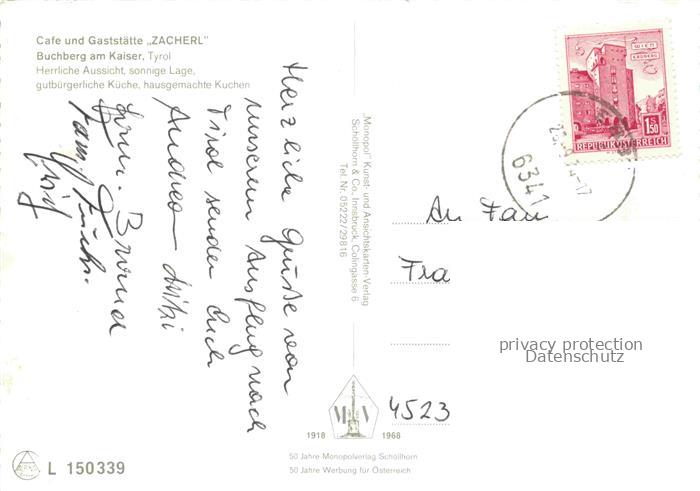 Cafe und Gaststätte „ZACHERL"
Buchberg am Kaiser, Tyrol
Herrliche Aussicht, sonnige Lage,
gutbürgerliche Küche, hausgemachte Kuchen
Herzliche Grüße von
unserem Ausflug nach
Tirol senden Euch
Andrea
Fam.
„Monopol" Kunst- und Ansichtskarten-Verlag
Schöllhorn & Co., Innsbruck, Colingasse 6
Tel. Nr. 05222/29816
WIEN
ERDBERG
1S50
REPUBLIK ÖSTERREICH
6341
An Fam
Fra
privacy protection
Datenschutz
4523
1918 1968
50 Jahre Monopolverlag Schöllhorn
50 Jahre Werbung für Österreich
L 150339